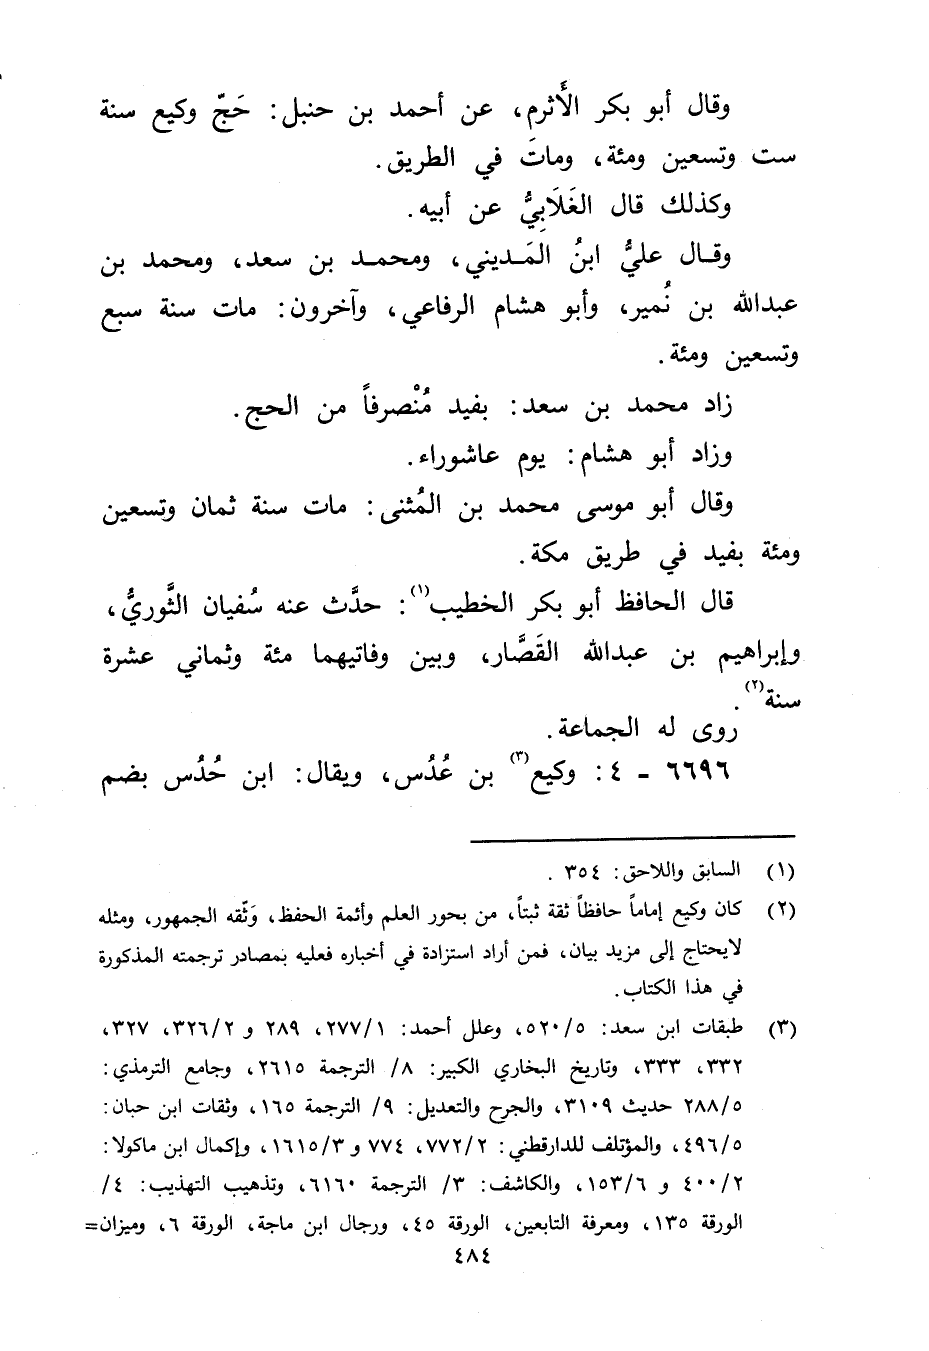 وقال أبو بكر الأَثرم، عن أحمد بن حنبل: حَجّ وكيع سنة
ست وتسعين ومئة، وماتَ في الطريق.
وكذلك قال الغَلَابِيُّ عن أبيه.
وقال عليُّ ابنُ المَديني، ومحمد بن سعد، ومحمد بن
عبدالله بن نُمير، وأبو هشام الرفاعي، وآخرون: مات سنة سبع
وتسعين ومئة.
زاد محمد بن سعد: بفيد مُنْصرفاً من الحج.
وزاد أبو هشام: يوم عاشوراء.
وقال أبو موسى محمد بن المُثنى: مات سنة ثمان وتسعين
ومئة بفيد في طريق مكة.
قال الحافظ أبو بكر الخطيب(١): حدَّث عنه سُفيان الثَّوريُّ،
وإبراهيم بن عبدالله القَصَّار، وبين وفاتيهما مئة وثماني عشرة
سنة(٢).
روى له الجماعة.
٦٦٩٦ - ٤: وكيع(٣) بن عُدُس، ويقال: ابن حُدُس بضم
(١) السابق واللاحق: ٣٥٤.
(٢) كان وكيع إماماً حافظاً ثقة ثبتاً، من بحور العلم وأئمة الحفظ، وَثّقه الجمهور، ومثله
لايحتاج إلى مزيد بيان، فمن أراد استزادة في أخباره فعليه بمصادر ترجمته المذكورة
في هذا الكتاب.
(٣) طبقات ابن سعد: ٥٢٠/٥، وعلل أحمد: ٢٧٧/١، ٢٨٩ و ٣٢٦/٢، ٣٢٧،
٣٣٢، ٣٣٣، وتاريخ البخاري الكبير: ٨/ الترجمة ٢٦١٥، وجامع الترمذي:
٢٨٨/٥ حديث ٣١٠٩، والجرح والتعديل: ٩/ الترجمة ١٦٥، وثقات ابن حبان:
٤٩٦/٥، والمؤتلف للدارقطني: ٧٧٢/٢، ٧٧٤ و ١٦١٥/٣، وإكمال ابن ماكولا:
٤٠٠/٢ و ١٥٣/٦، والكاشف: ٣/ الترجمة ٦١٦٠، وتذهيب التهذيب: ٤/
الورقة ١٣٥، ومعرفة التابعين، الورقة ٤٥، ورجال ابن ماجة، الورقة ٦، وميزان=
٤٨٤